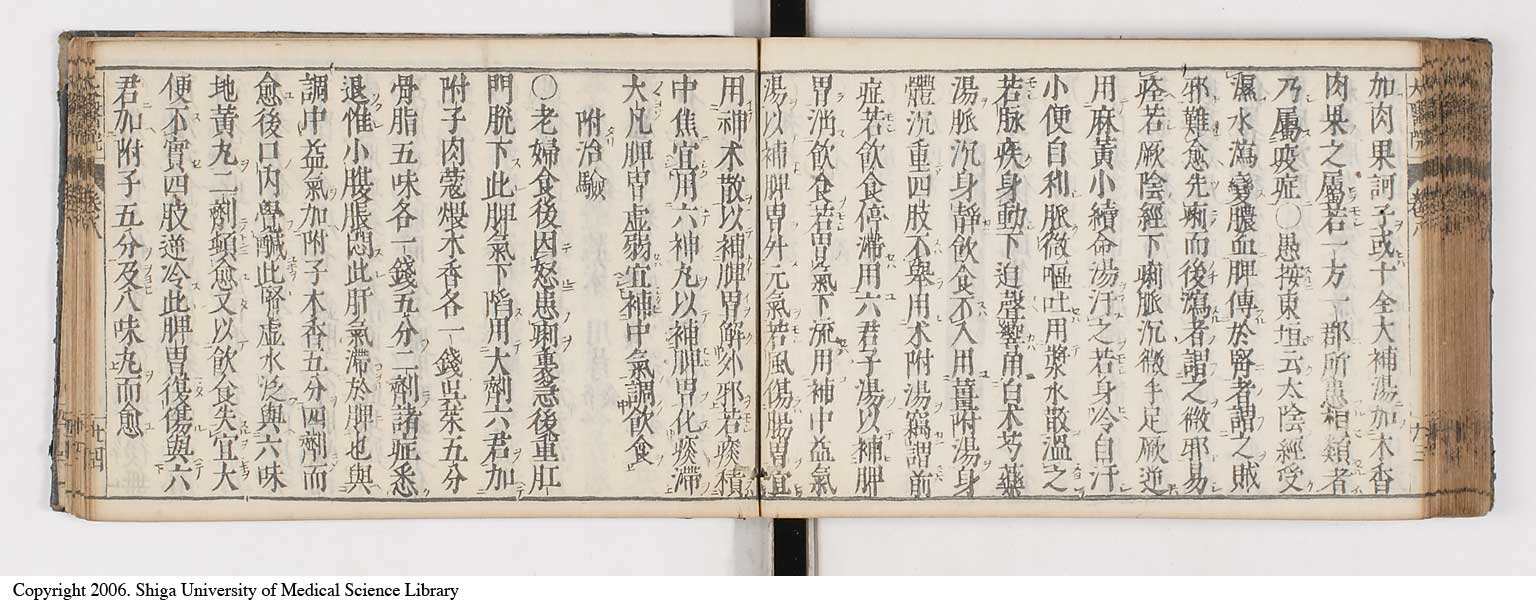 加肉果訶子或十全大補湯加木香
肉果之屬若一方一郡所患相類者
乃屬疫症〇愚按東垣云太陰經受
濕水瀉變膿血脾傳於腎者謂之賊
邪難愈先痢而後瀉者謂之微邪易
痊若厥陰經下痢脈沉微手足厥逆
用麻黃小續命湯汗之若身冷自汗
小便自利脈微嘔吐用漿水散溫之
若脉疾身動下迫聲響用白术芍藥
湯脈沉身靜飲食不入用薑附湯身
體沉重四肢不舉用术附湯竊謂前
症若飲食停滯用六君子湯以補脾
胃消飲食若胃氣下流用補中益氣
湯以補脾胃升元氣若風傷腸胃宜
用神术散以補脾胃解外邪若痰積
中焦宜用六神丸以補脾胃化痰滯
大凡脾胃虛弱宜補中氣調飲食
附治驗
〇老婦食後因怒患痢裏急後重肛
門脫下此脾氣下陷用大劑六君加
附子肉蔻煨木香各一錢吳茱五分
骨脂五味各一錢五分二劑諸症悉
退惟小腹脹悶此肝氣滯於脾也與
調中益氣加附子木香五分四劑而
愈後口內覺鹹此腎虛水泛與六味
地黃丸二劑頓愈又以飲食失宜大
便不實四肢逆冷此脾胃復傷與六
君加附子五分及八味丸而愈
Copyright 2006. Shiga University of Medical Science Library